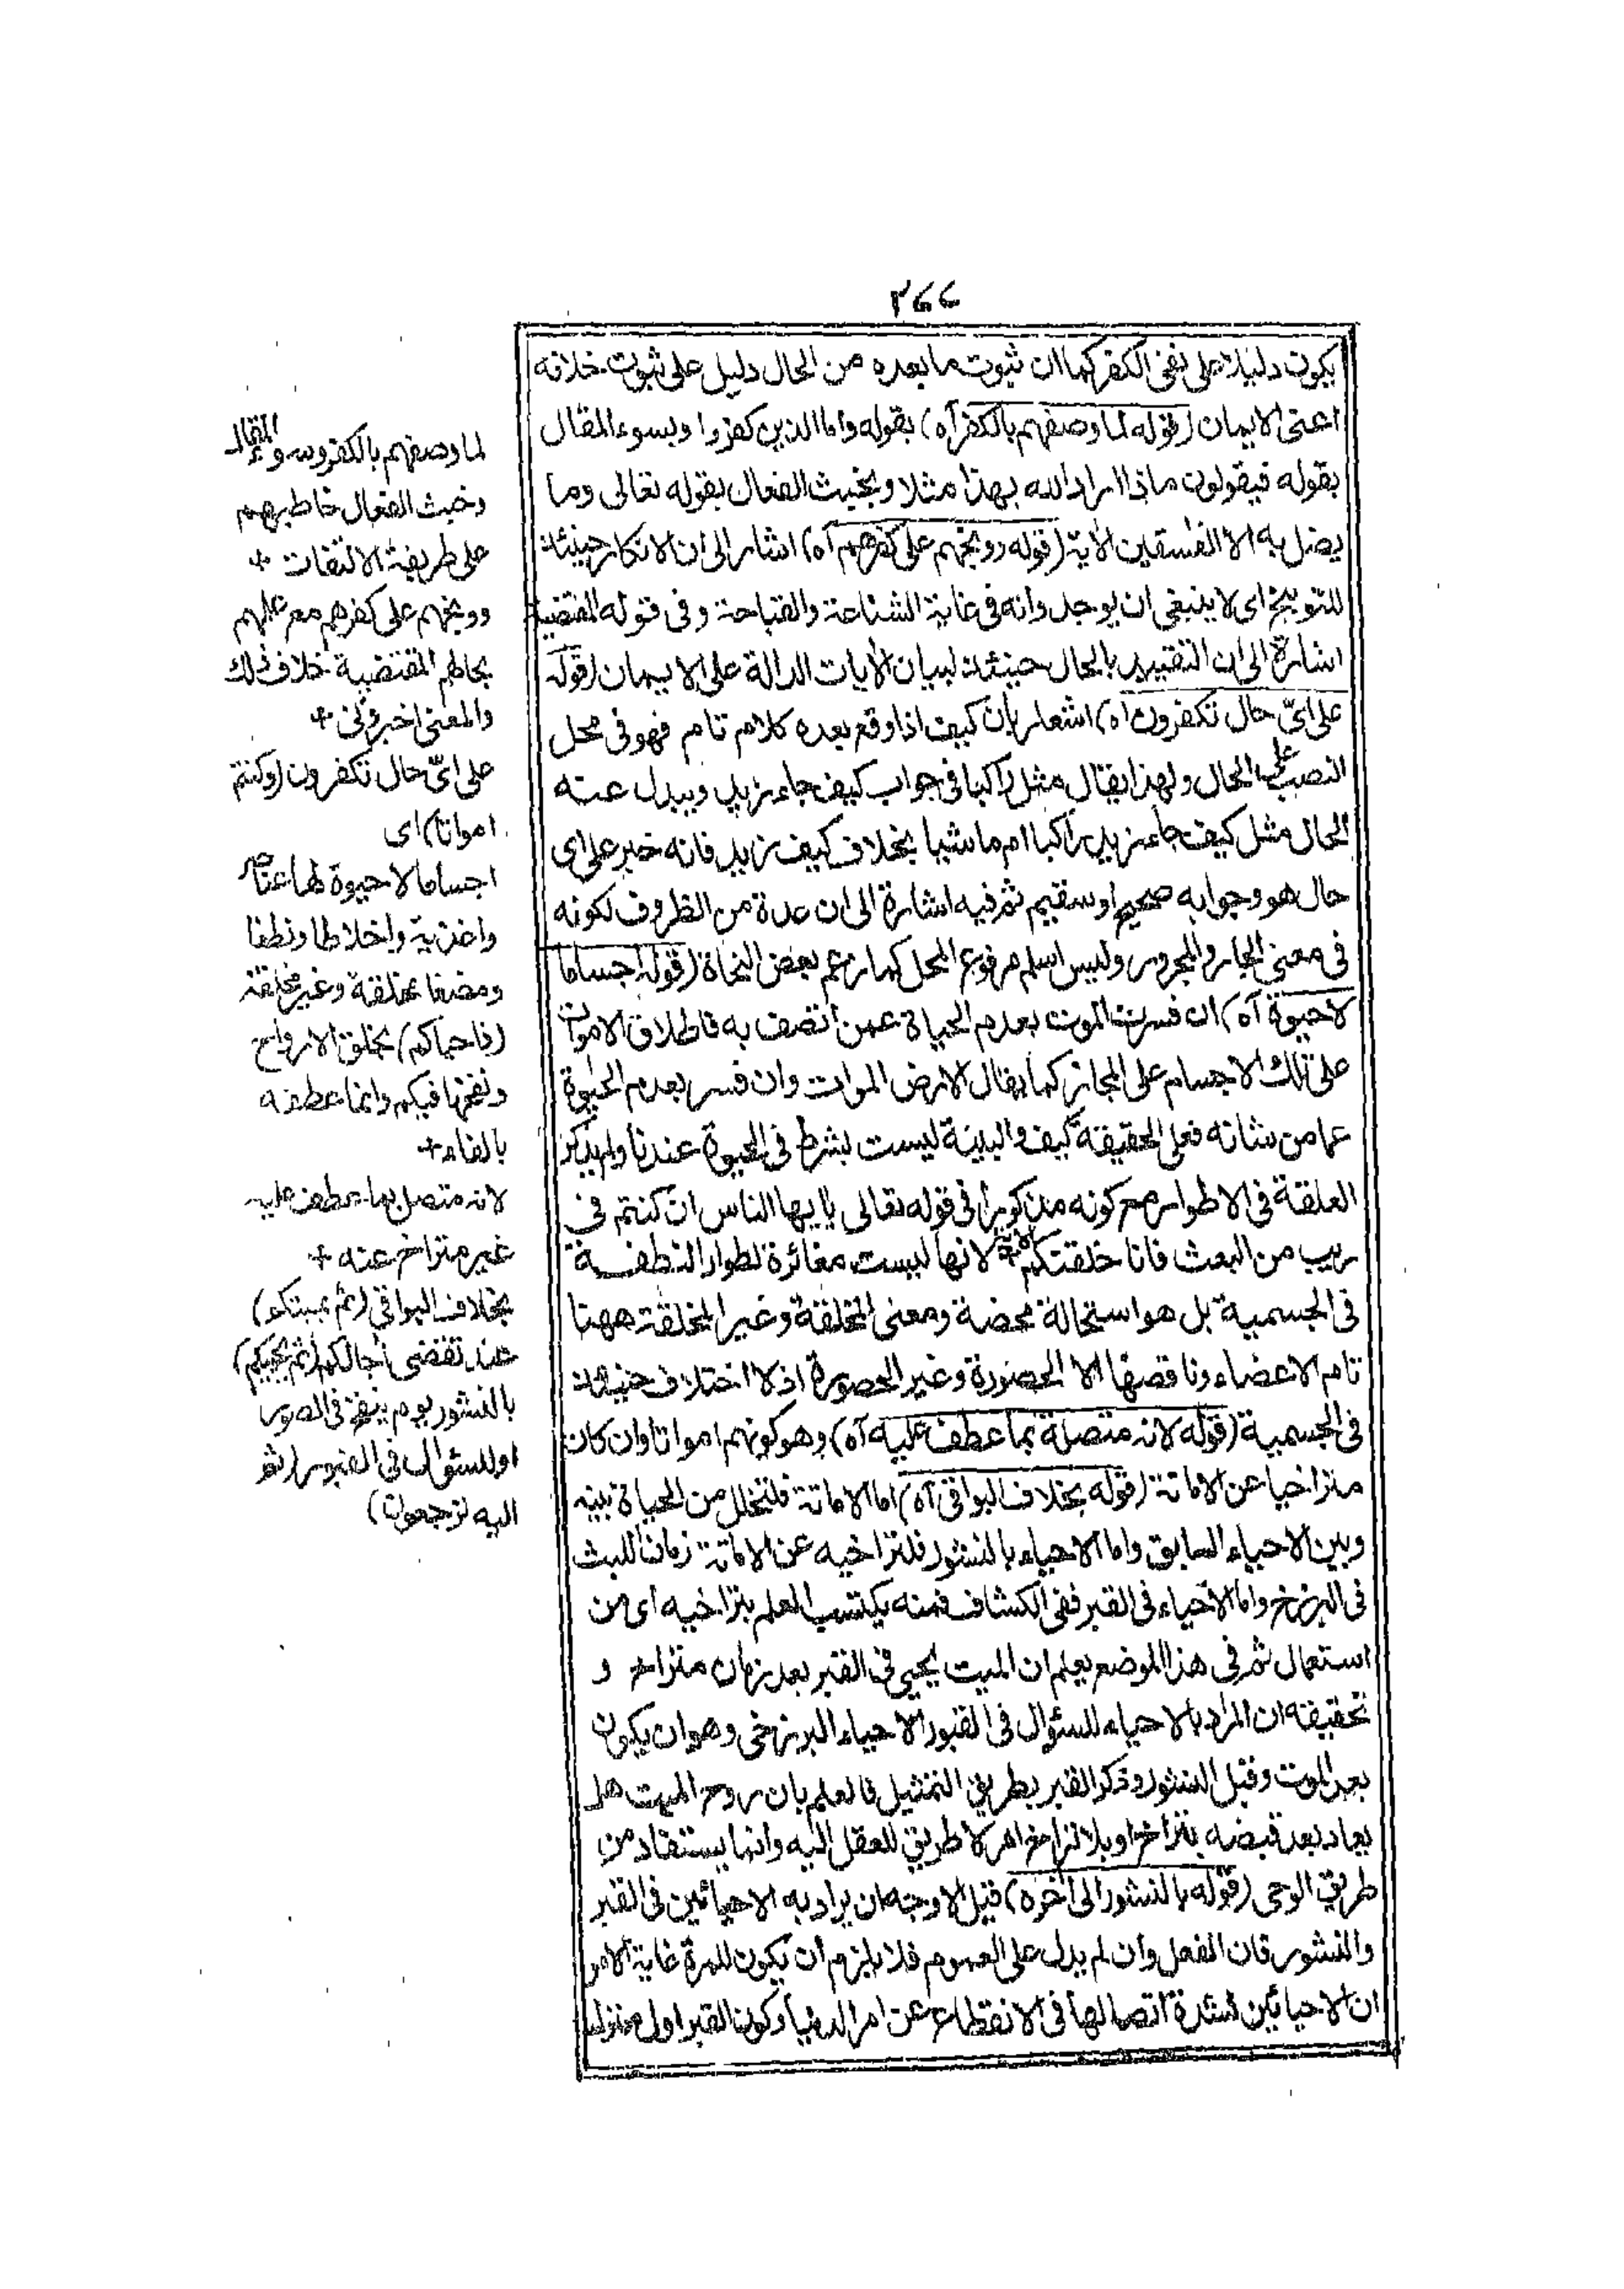 ٢٦٦
يكون دليلا على نفى الكفر كما ان ثبوت ما بعده من الحال دليل على ثبوت خلافه
اعنى الايمان (قوله لما وصفهم بالكفر آه) بقوله واما الذين كفروا وبسوء المقال
بقوله فيقولون ماذا اراد الله بهذا مثلا وبخبث الفعال بقوله تعالى وما
يضل به الا الفسقين الاية (قوله ووبخهم على كفرهم آه) اشار الى ان الانكار حينئذ
للتوبيخ اى لا ينبغى ان يوجد وانه فى غاية الشناعة والقباحة وفى قوله المقتضية
اشارة الى ان التقييد بالحال حينئذ لبيان الايات الدالة على الايمان (قوله
على اىّ حال تكفرون اه) اشعار بان كيف اذا وقع بعده كلام تام فهو فى محل
النصب على الحال ولهذا يقال مثل راكبا فى جواب كيف جاء زيد ويبدل عنه
الحال مثل كيف جاء زيد راكبا ام ماشيا بخلاف كيف زيد فانه خبر على اى
حال هو وجوابه صحيح او سقيم ثم فيه اشارة الى ان عدة من الظروف لكونه
فى معنى الجار والمجرور وليس اسلم مرفوع المحل كما زعم بعض النحاة (قوله اجساما
لا حيوة آه) ان فسرت الموت بعدم الحياة عمن اتصف به فاطلاق الاموات
على تلك الاجسام على المجاز كما يقال الارض الموات وان فسر بعدم الحيوة
عما من شانه فعلى الحقيقة كيف والبنية ليست بشرط فى الحيوة عندنا ولم يذكر
العلقة فى الاطوار مع كونه مذكورا فى قوله تعالى يايها الناس ان كنتم فى
ريب من البعث فانا خلقنكم الاية لانها ليست مغائرة لطوار النطفة
فى الجسمية بل هو استحالة محضة ومعنى المخلقة وغير المخلقة ههنا
تام الاعضاء وناقصها لا المصورة وغير المصورة اذ لا اختلاف حينئذ
فى الجسمية (قوله لانه متصلة بما عطف عليه آه) وهو كونهم امواتا وان كان
متراخيا عن الاماتة (قوله بخلاف البواقى آه) اما الاماتة فلتخلل من الحياة بينه
وبين الاحياء السابق واما الاحياء بالنشور فلتراخيه عن الاماتة زمان اللبث
فى البرزخ واما الاحياء فى القبر ففى الكشاف فمنه يكتسب العلم بتراخيه اى من
استعمال ثم فى هذا الموضع يعلم ان الميت يحيى فى القبر بعد زمان متراخ و
تحقيقه ان المراد بالاحياء للسؤال فى القبور الاحياء البرزخى وهو ان يكون
بعد الموت وقبل النشور وذكر القبر بطريق التمثيل فالعلم بان روح الميت هل
يعاد بعد قبضه بتراخ او بلا تراخ امر لا طريق للعقل اليه وانما يستفاد من
طريق الوحى (قوله بالنشور الى آخره) قيل الاوجه ان يراد به الاحيائين فى القبر
والنشور فان الفعل وان لم يدل على العموم فلا يلزم ان يكون للمرة غاية الامر
ان الاحيائين لشدة اتصالها فى الانقطاع عن امر الدنيا وكون القبر اول منزل
لما وصفهم بالكفر وسوء المقال
وخبث الفعال خاطبهم
على طريقة الالتفات +
ووبخهم على كفرهم مع علمهم
بحالهم المقتضية خلاف ذلك
والمعنى اخبرونى +
على اىّ حال تكفرون (وكنتم
امواتا) اى
اجساما لا حيوة لها عناصر
واغذية واخلاطا ونطفا
ومضغا مخلقة وغير مخلقة
(فاحياكم) بخلق الارواح
ونفخها فيكم وانما عطفه
بالفاء +
لانه متصل بما عطف عليه
غير متراخ عنه +
بخلاف البواقى (ثم يميتكم)
عند تقضى آجالكم (ثم يحييكم)
بالنشور يوم ينفخ فى الصور
او للسؤال فى القبور (ثم
اليه ترجعون)